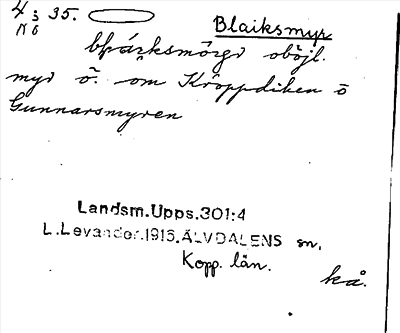 4 3 35.
N ö
Blaiksmyr
oböjl.
myr ö. om Kroppdiken o
Gunnarsmyren
Landsm.Upps.301:4
L.Levander.1915.ÄLVDALENS sn,
Kopp. län.
kå.